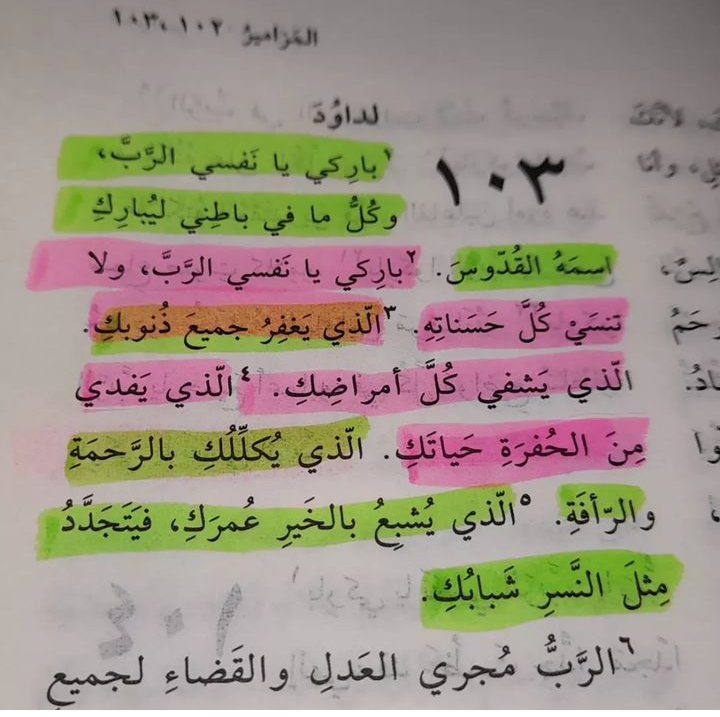 المَزاميرُ ١٠٢، ١٠٣
لداوُدَ
١٠٣
١بارِكي يا نَفسي الرَّبَّ،
وكُلُّ ما في باطِني ليُبارِكِ
اسمَهُ القُدّوسَ. ٢بارِكي يا نَفسي الرَّبَّ، ولا
تنسَيْ كُلَّ حَسَناتِهِ. ٣الّذي يَغفِرُ جميعَ ذُنوبكِ.
الّذي يَشفي كُلَّ أمراضِكِ. ٤الّذي يَفدي
مِنَ الحُفرَةِ حَياتَكِ. الّذي يُكلِّلُكِ بالرَّحمَةِ
والرّأفَةِ. ٥الّذي يُشبِعُ بالخَيرِ عُمرَكِ، فيَتَجَدَّدُ
مِثلَ النَّسرِ شَبابُكِ.
٦الرَّبُّ مُجري العَدلِ والقَضاءِ لجميعِ